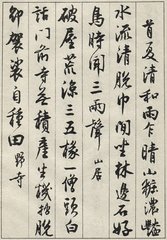 首夏清和雨乍晴山榴濃艷
水流清脫巾閒坐林邊石好
鳥時聞三兩聲 山居
破屋荒涼三五椽一僧頭白
話門前寺無積產生機拙脫
卻袈裟自種田 野寺